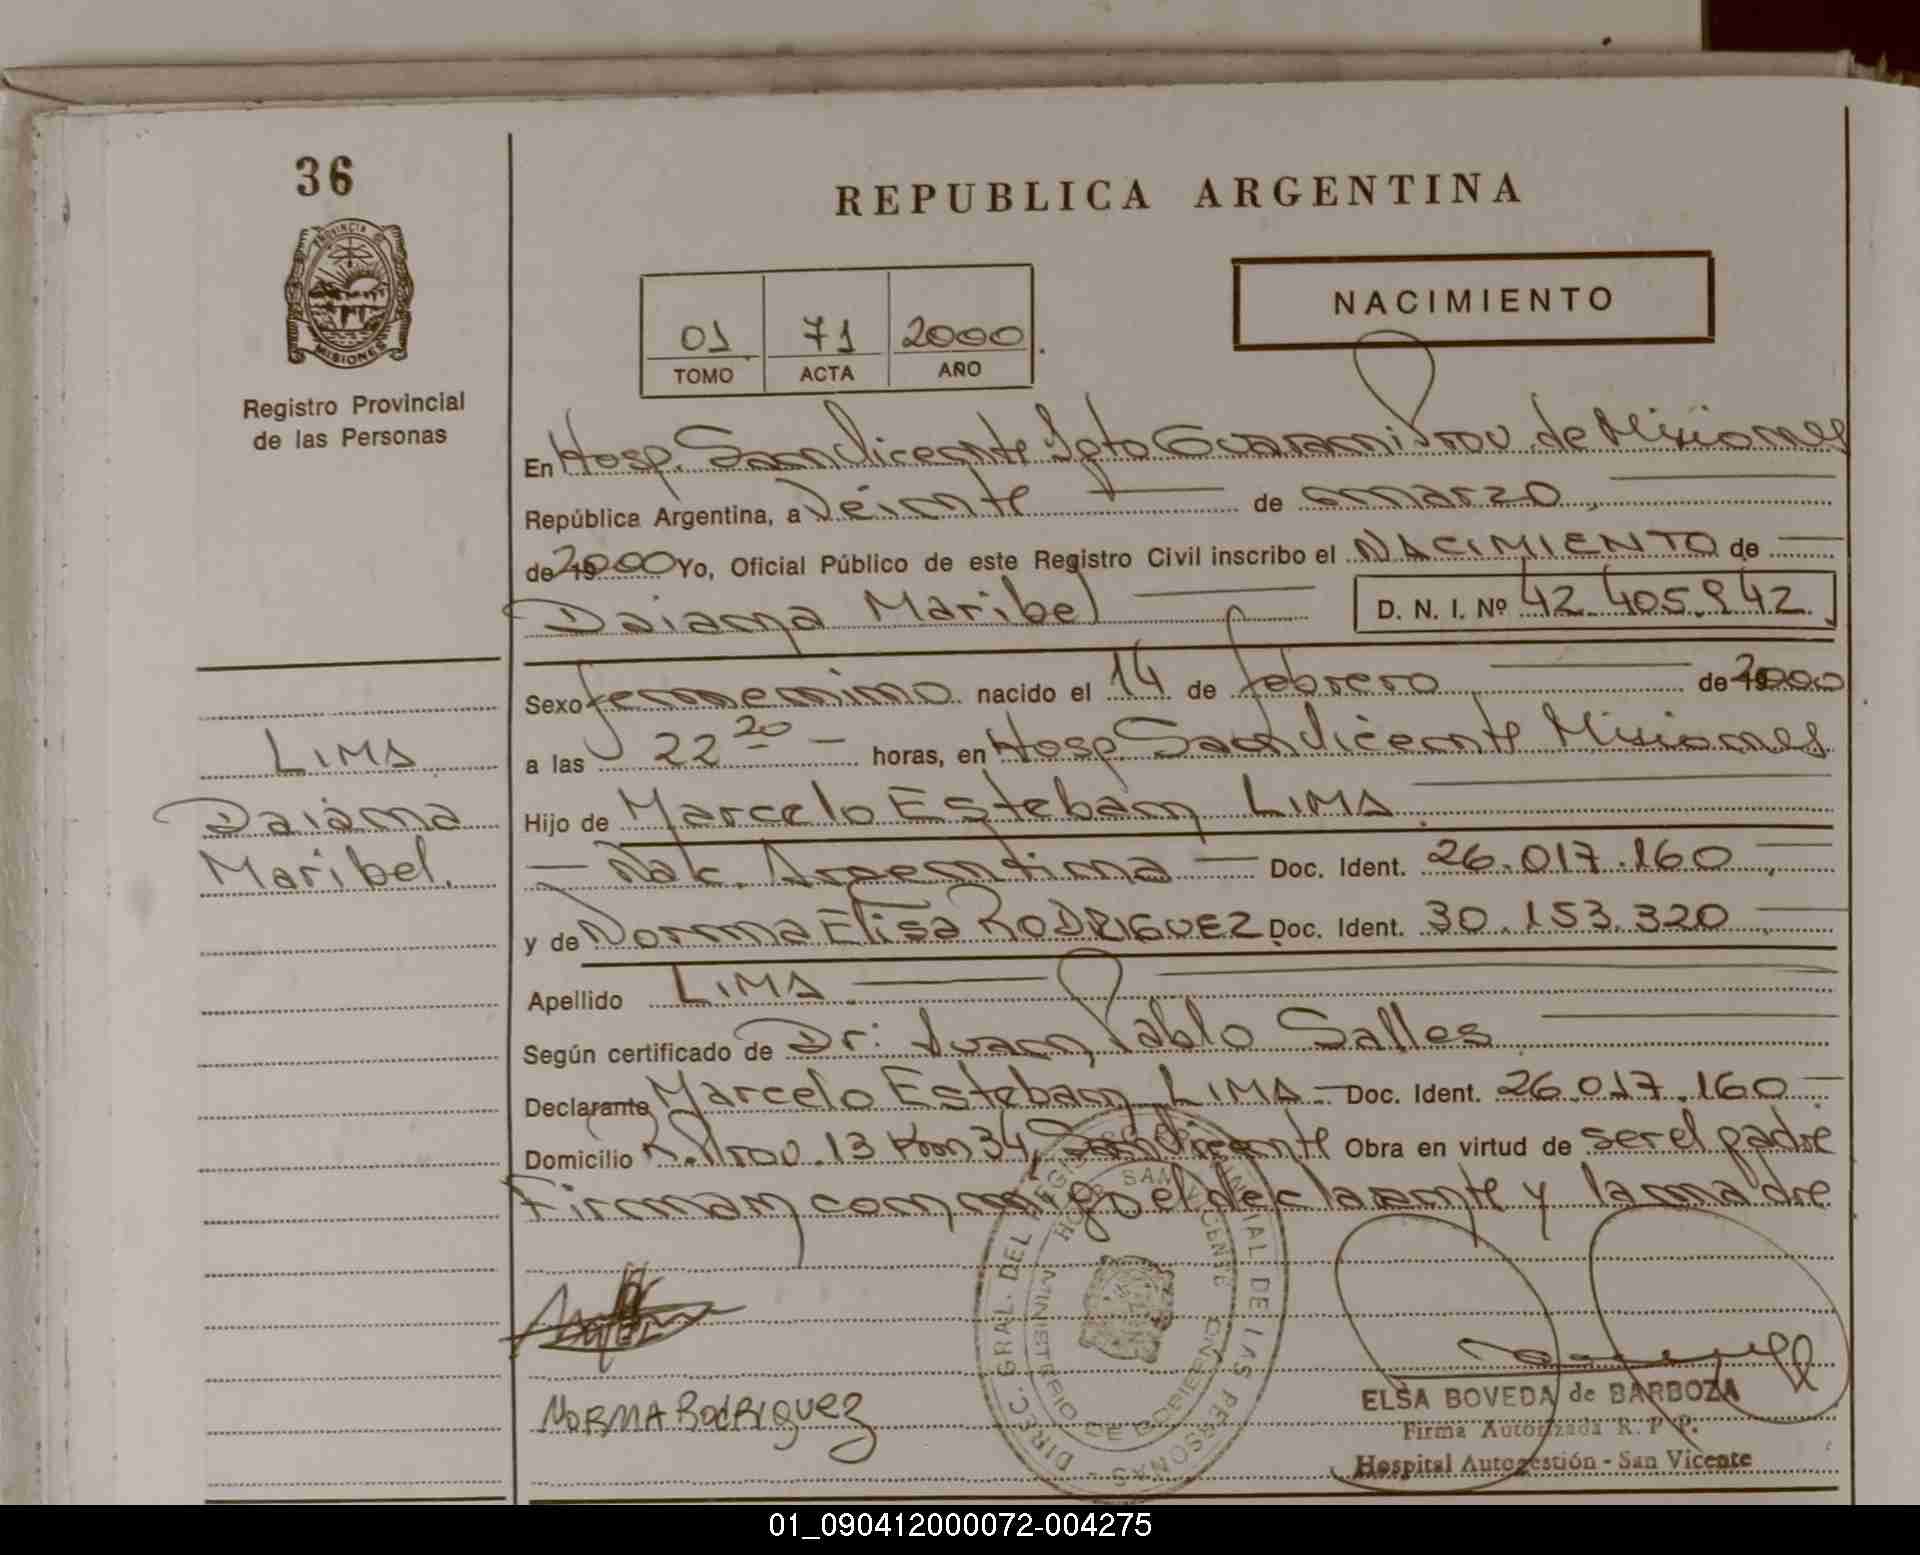 36
REPUBLICA ARGENTINA
PROVINCIA DE
MISIONES
Registro Provincial
de las Personas
01 71 2000
TOMO ACTA AÑO
NACIMIENTO
En Hosp. San Vicente Dpto Guarani Prov. de Misiones
República Argentina, a Veinte de marzo
de 2000 Yo, Oficial Público de este Registro Civil inscribo el NACIMIENTO de
Daiana Maribel D. N. I. Nº 42.405.842
Sexo femenino nacido el 14 de febrero de 2000
a las 22 20 horas, en Hosp San Vicente Misiones
Hijo de Marcelo Esteban LIMA
Nac. Argentina Doc. Ident. 26.017.160
y de Norma Elisa RODRIGUEZ Doc. Ident. 30.153.320
Apellido LIMA
Según certificado de Dr: Juan Pablo Salles
Declarante Marcelo Esteban LIMA Doc. Ident. 26.017.160
Domicilio R. Prov. 13 Km 34, San Vicente Obra en virtud de ser el padre
Firman conmigo el declarante y la madre
LIMA
Daiana
Maribel.
DIREC. GRAL. DEL REGISTRO PROVINCIAL DE LAS PERSONAS
HOSP. SAN VICENTE
MINISTERIO DE GOBIERNO
NORMA RODRIGUEZ
ELSA BOVEDA de BARBOZA
Firma Autorizada R. P P.
Hospital Autogestión - San Vicente
01_090412000072-004275